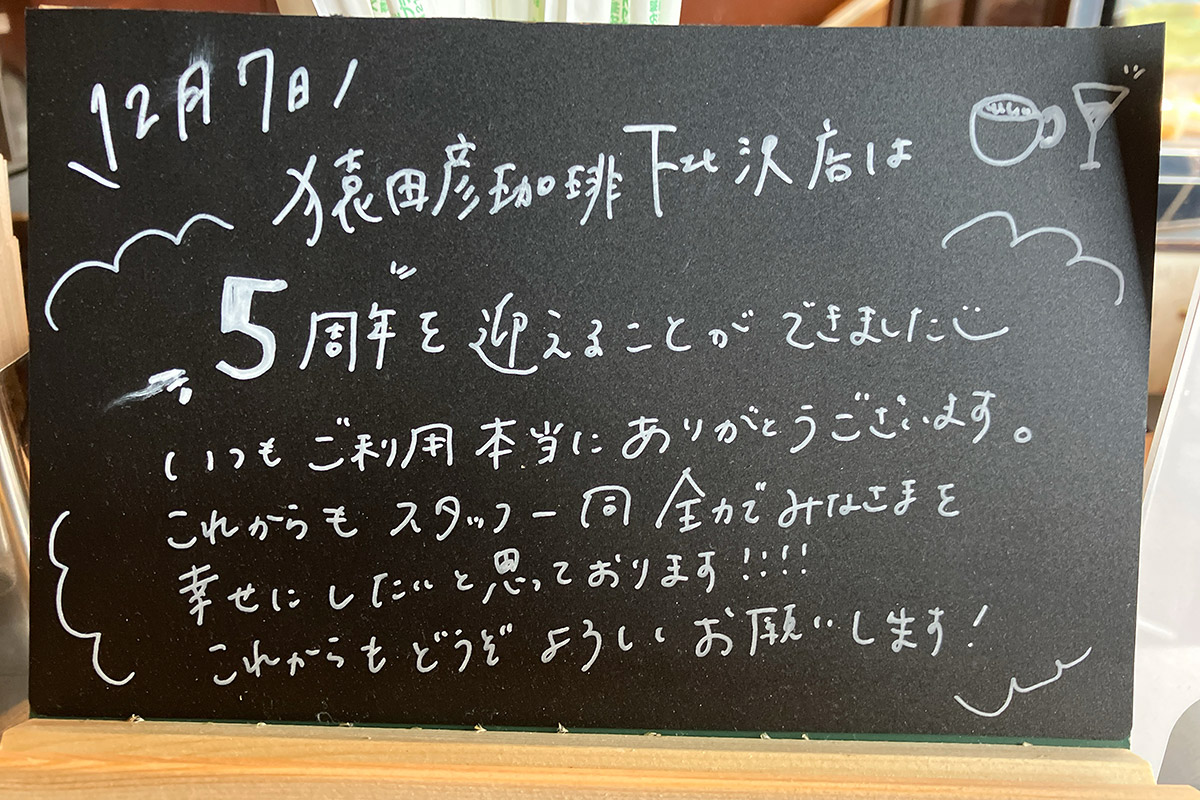 12月7日
猿田彦珈琲下北沢店は
5周年を迎えることができました
いつもご利用本当にありがとうございます。
これからもスタッフ一同全力でみなさまを
幸せにしたいと思っております!!!!
これからもどうぞよろしくお願いします!